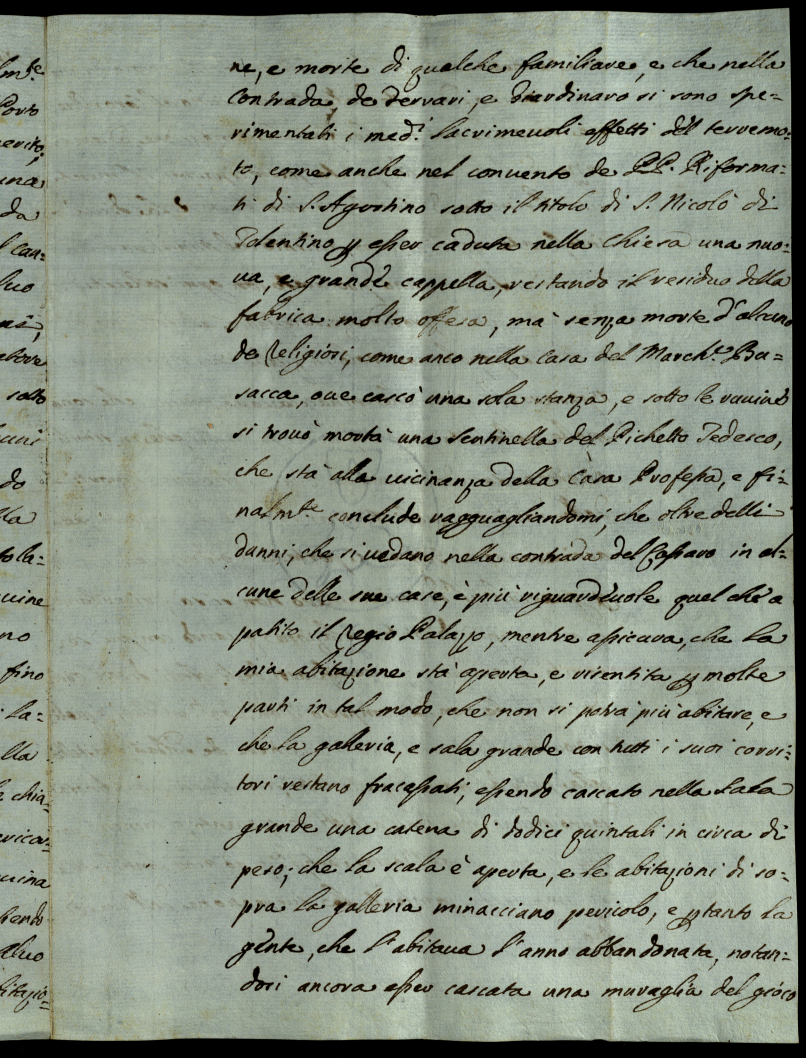 lm.te
Porto
merito;
una
da
l Cau=
luo
sotto
do
lla
tola=
uine
no
fino
la=
lla
chia=
uina
hendo
aluo
bitazio=
ne, e morte di qualche familiare, e che nella
Contrada, de Tervari, e Giardinaro si sono spe=
rimentati i med.i lacrimeuoli effetti del terremo=
to, come anche nel conuento de PP. Riforma=
ti di S. Agostino sotto il titolo di S. Nicolò di
Tolentino p esser caduta nella Chiesa una nuo=
ua, e grande cappella, restando il residuo della
fabrica molto offesa, mà senza morte d'alcuno
de Religiosi, come anco nella Casa del March.e Bu=
sacca, oue cascò una sola stanza, e sotto le rouine
si trouò morta una Sentinella del Pichetto Tedesco,
che stà alla uicinanza della Casa Professa, e fi=
nalm.te conclude ragguagliandomi, che oltre delli
danni, che si uedano nella contrada del Cassaro in al=
cune delle sue case, è più riguardeuole quel ch'a
patito il Regio Palazzo, mentre apicaua, che la
mia abitazione stà aperta, e risentita p molte
parti in tal modo, che non si potrà più abitare, e
che la galleria, e sala grande con tutti i suoi corri=
tori restano fracassati, essendo cascato nella Sala
grande una catena di dodici quintali in circa di
peso; che la scala è aperta, e le abitazioni di so=
pra la galleria minacciano pericolo, e ptanto la
gente, che l'abitaua l'anno abbandonata, notan=
dosi ancora esser cascata una muraglia del gioco